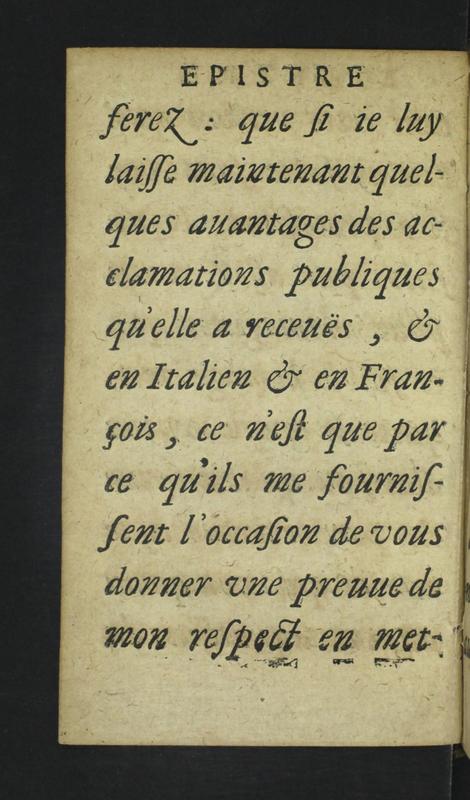 EPISTRE
ferez : que ſi ie luy
laiſſe maintenant quel-
ques auantages des ac-
clamations publiques
qu'elle a receuës , &
en Italien & en Fran-
çois , ce n'eſt que par
ce qu'ils me fourniſ-
ſent l'occaſion de vous
donner vne preuue de
mon reſpect en met-